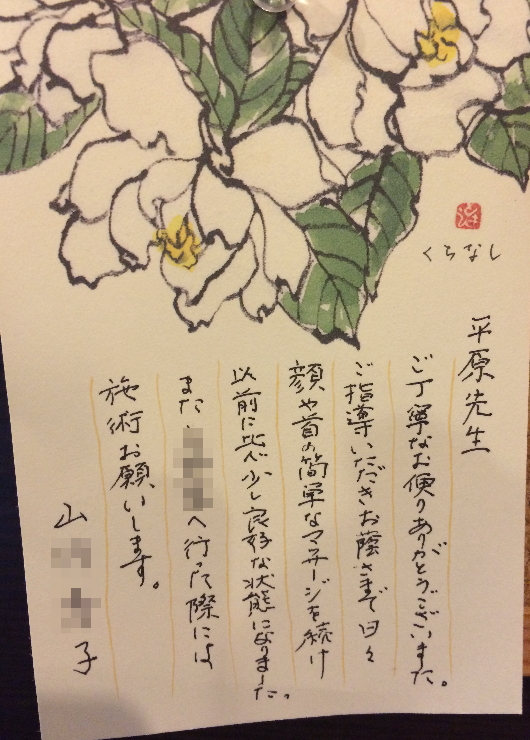 くちなし
平原先生
ご丁寧なお便りありがとうございました。
ご指導いただきお蔭さまで日々
顔や首の簡単なマッサージを続け
以前に比べ少し良好な状態になりました。
また、へ行った際には
施術お願いします。
山 子